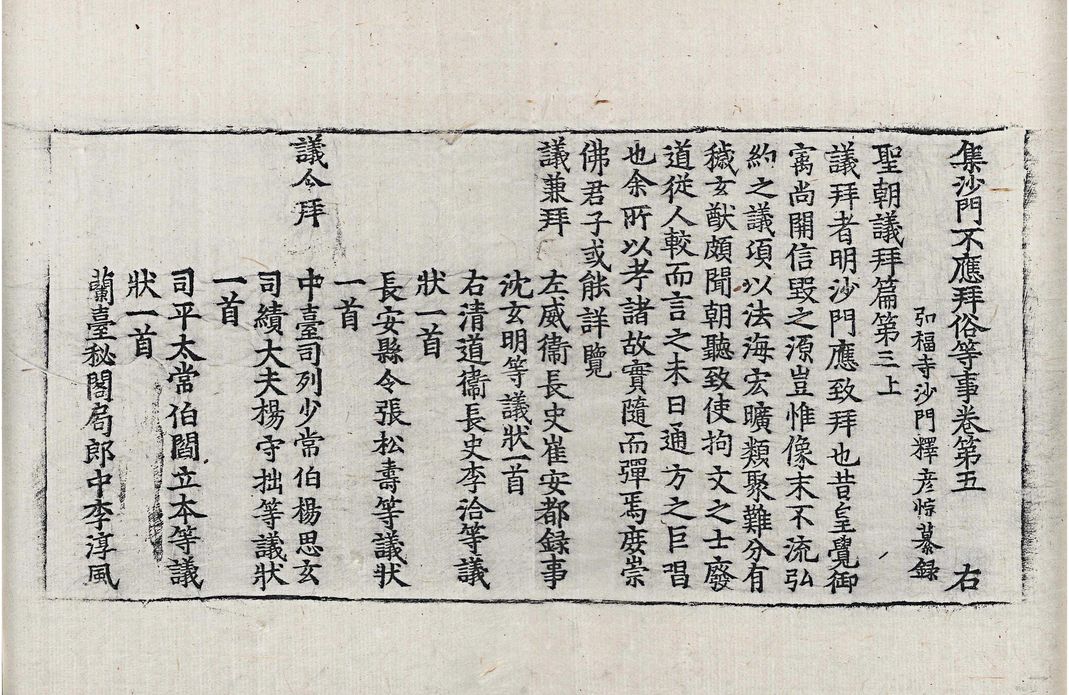 集沙門不應拜俗等事卷第五　右
弘福寺沙門釋彥悰纂録
聖朝議拜篇第三上
議拜者明沙門應致拜也昔皇覺御
㝢尚開信毀之源豈惟像末不流弘
約之議頃以法海宏曠類聚難分有
穢玄猷頗聞朝聽致使拘文之士廢
道從人較而言之未曰通方之巨唱
也余所以考諸故實隨而彈焉庻崇
佛君子或能詳覽
議兼拜
左威衞長史崔安都録事
沈玄明等議狀一首
右清道衞長史李洽等議
狀一首
長安縣令張松壽等議狀
一首
議令拜
中臺司列少常伯楊思玄
司績大夫楊守拙等議狀
一首
司平太常伯閻立本等議
狀一首
蘭臺秘閣局郎中李淳風